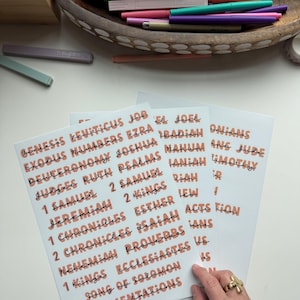 GENESIS LEVITICUS JOB
EXODUS NUMBERS EZRA
DEUTERONOMY JOSHUA
JUDGES RUTH PSALMS
1 SAMUEL 2 SAMUEL
JEREMIAH 2 KINGS
1 CHRONICLES ESTHER
2 CHRONICLES ISAIAH
NEHEMIAH PROVERBS
1 KINGS ECCLESIASTES
SONG OF SOLOMON
MENTATIONS
EL JOEL
OBADIAH
NAHUM
HANIAH
RIAH
EW
ACTS
US
US
ONIANS
ANS JUDE
TIMOTHY
R
I
TION